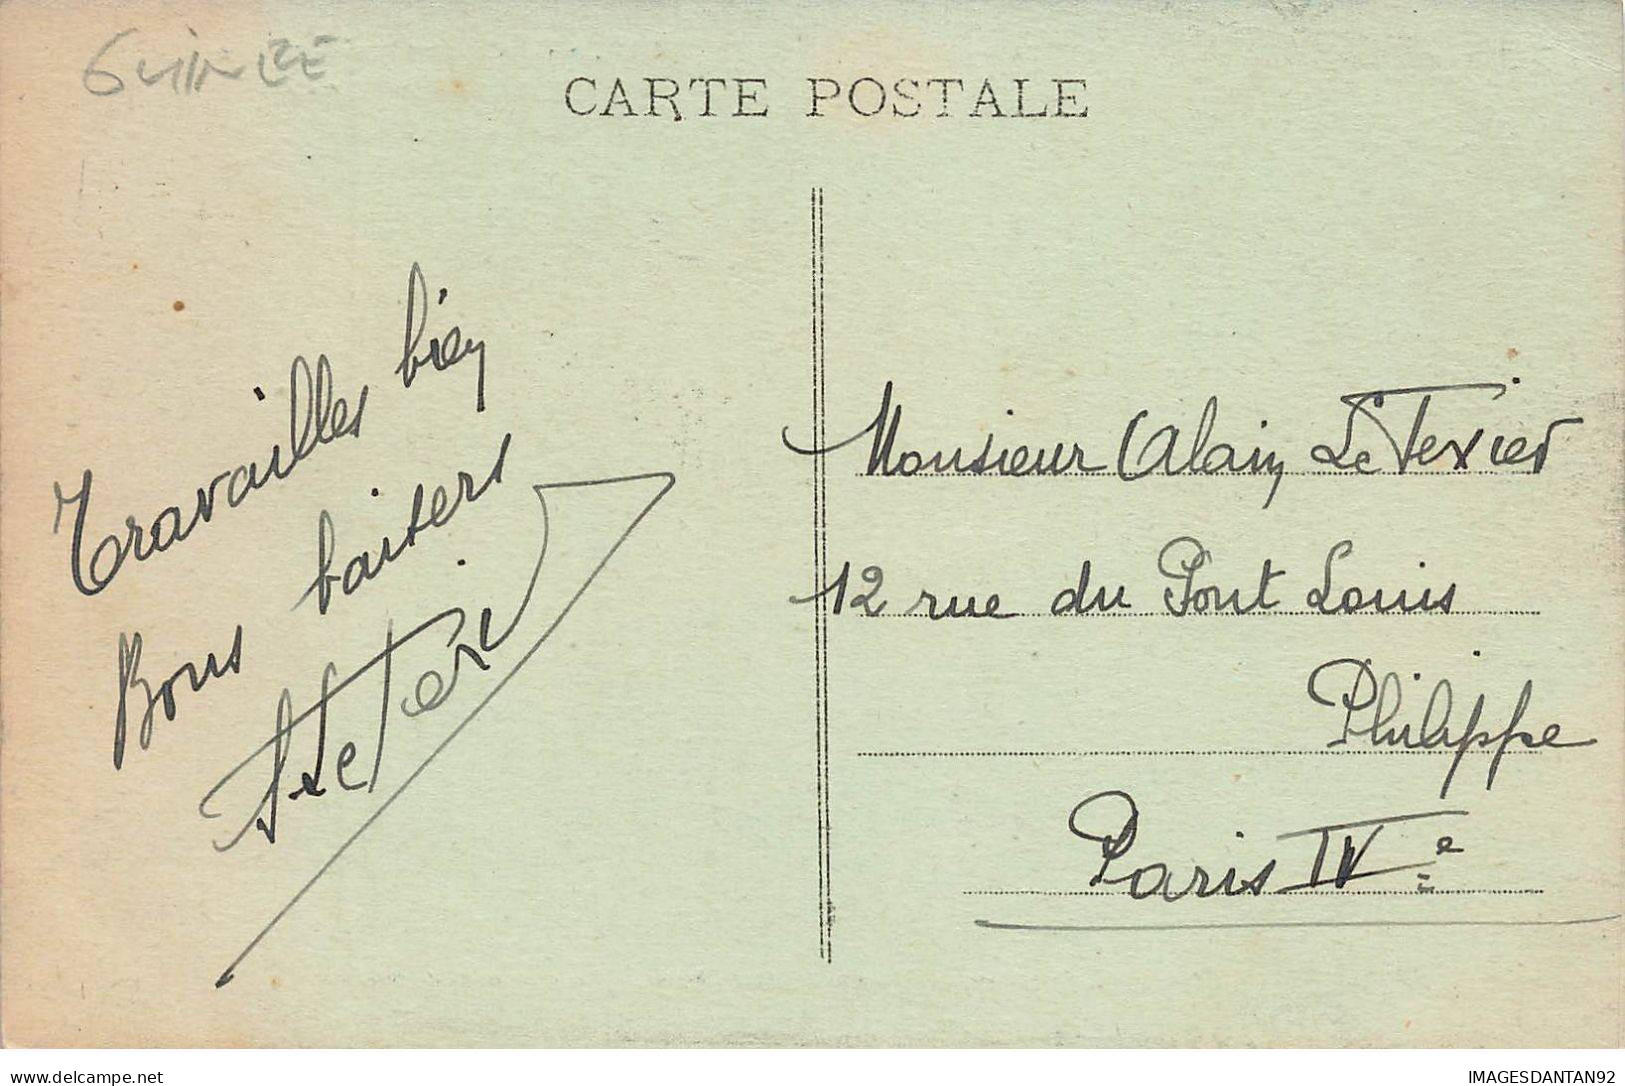 GUINEE
CARTE POSTALE
Travailles bien
Bons baisers
Monsieur Alain Le Texier
12 rue du Pont Louis
Philippe
Paris IVe
delcampe.net
IMAGESDANTAN92